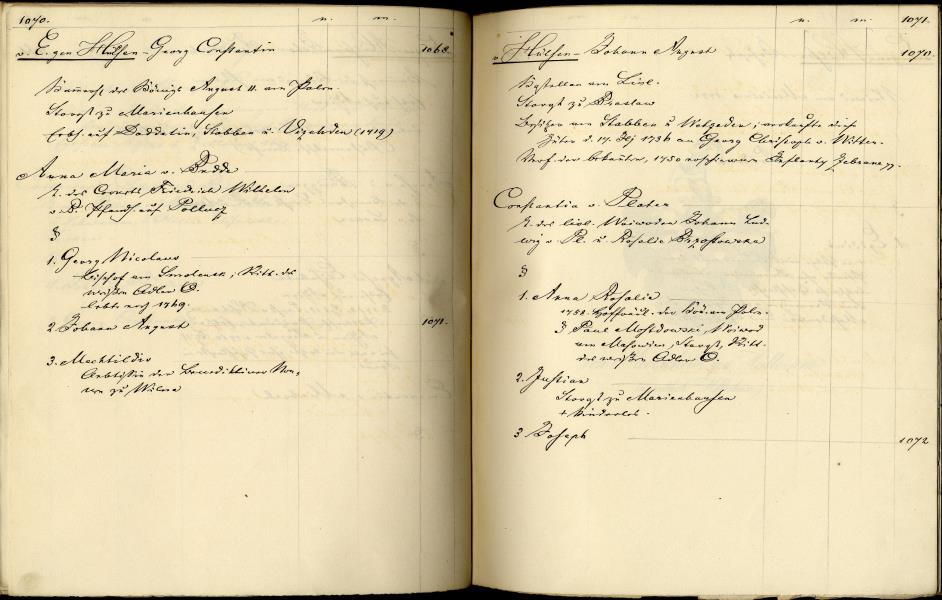 1070. v. m.
v. E. gen Hülsen - Georg Constantin 1068
Kammerh. des Königs August II. von Polen.
Starost zu Marienhausen
Erbh. auf Daddelin, Stabben u. (1719)
Anna Maria v. Budde
T. des Cornett Friedrich Wilhelm
v. B. Pfandh. auf
§
1. Georg Nicolaus
Bischof von Smolensk; Ritt. des
weißen Adler O.
lebte noch 1769.
2 Johann August 1071.
3. Mechtildis
Aebtissin der Benediktiner Non=
nen zu Wilna
v. m. 1071.
v Hülsen - Johann August 1070.
Kastellan von Livl.
Starost zu Braslaw
Besitzer von Stabben u. ; verkaufte diese
Güter d. 17. 1736 an Georg Christoph v. Witten.
Verf. der Arbeiten, 1750 erschienenen Inflanty
Constantia v. Plater
T. des livl. Woiwoden Johann Lud=
wig v. Pl. u. Rosalie Brzostowska
§
1. Anna Rosalie
1752. Hoffräul. der Kön. von Polen.
§ Paul , Woiwod
von Masowien, Starost, Ritt.
des weißen Adler O.
2. Justian
Starost zu Marienhausen
+ kinderlos.
3 Joseph 1072